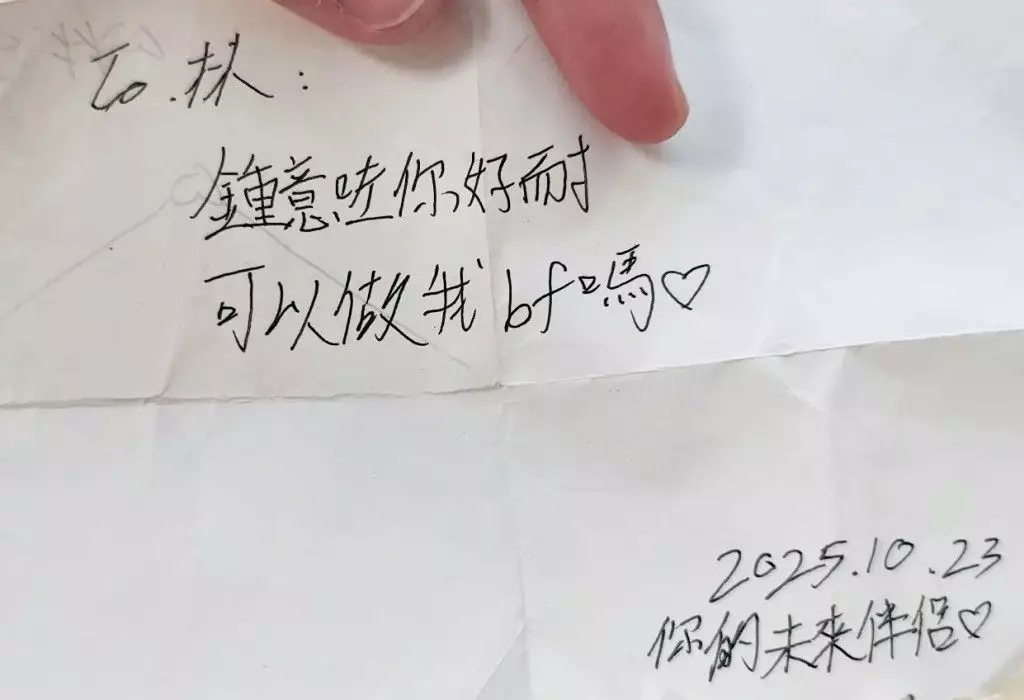 To.林：
鍾意咗你好耐
可以做我bf嗎♡
2025.10.23
你的未來伴侶♡